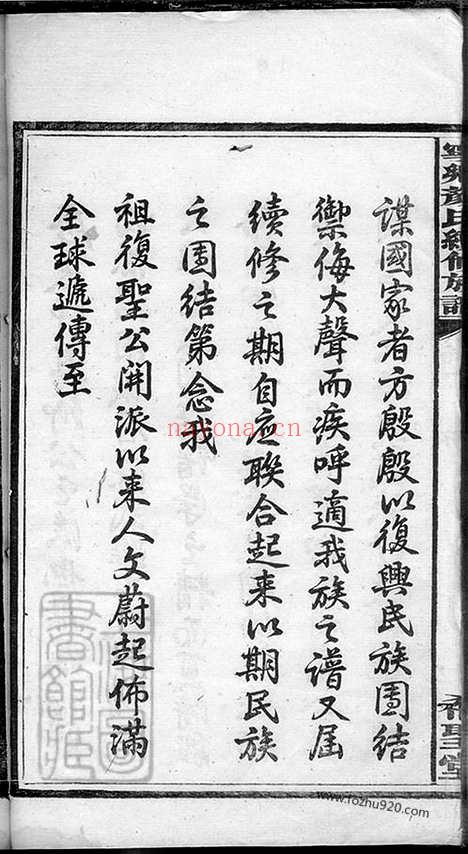 寧鄉顏氏續修族譜
復聖堂
謀國家者方殷殷以復興民族團结
禦侮大聲而疾呼適我族之譜又屆
續修之期自应聯合起来以期民族
之團结第念我
祖復聖公開派以来人文蔚起佈滿
全球遞傳至
nayona.cn
www.fozhu920.com